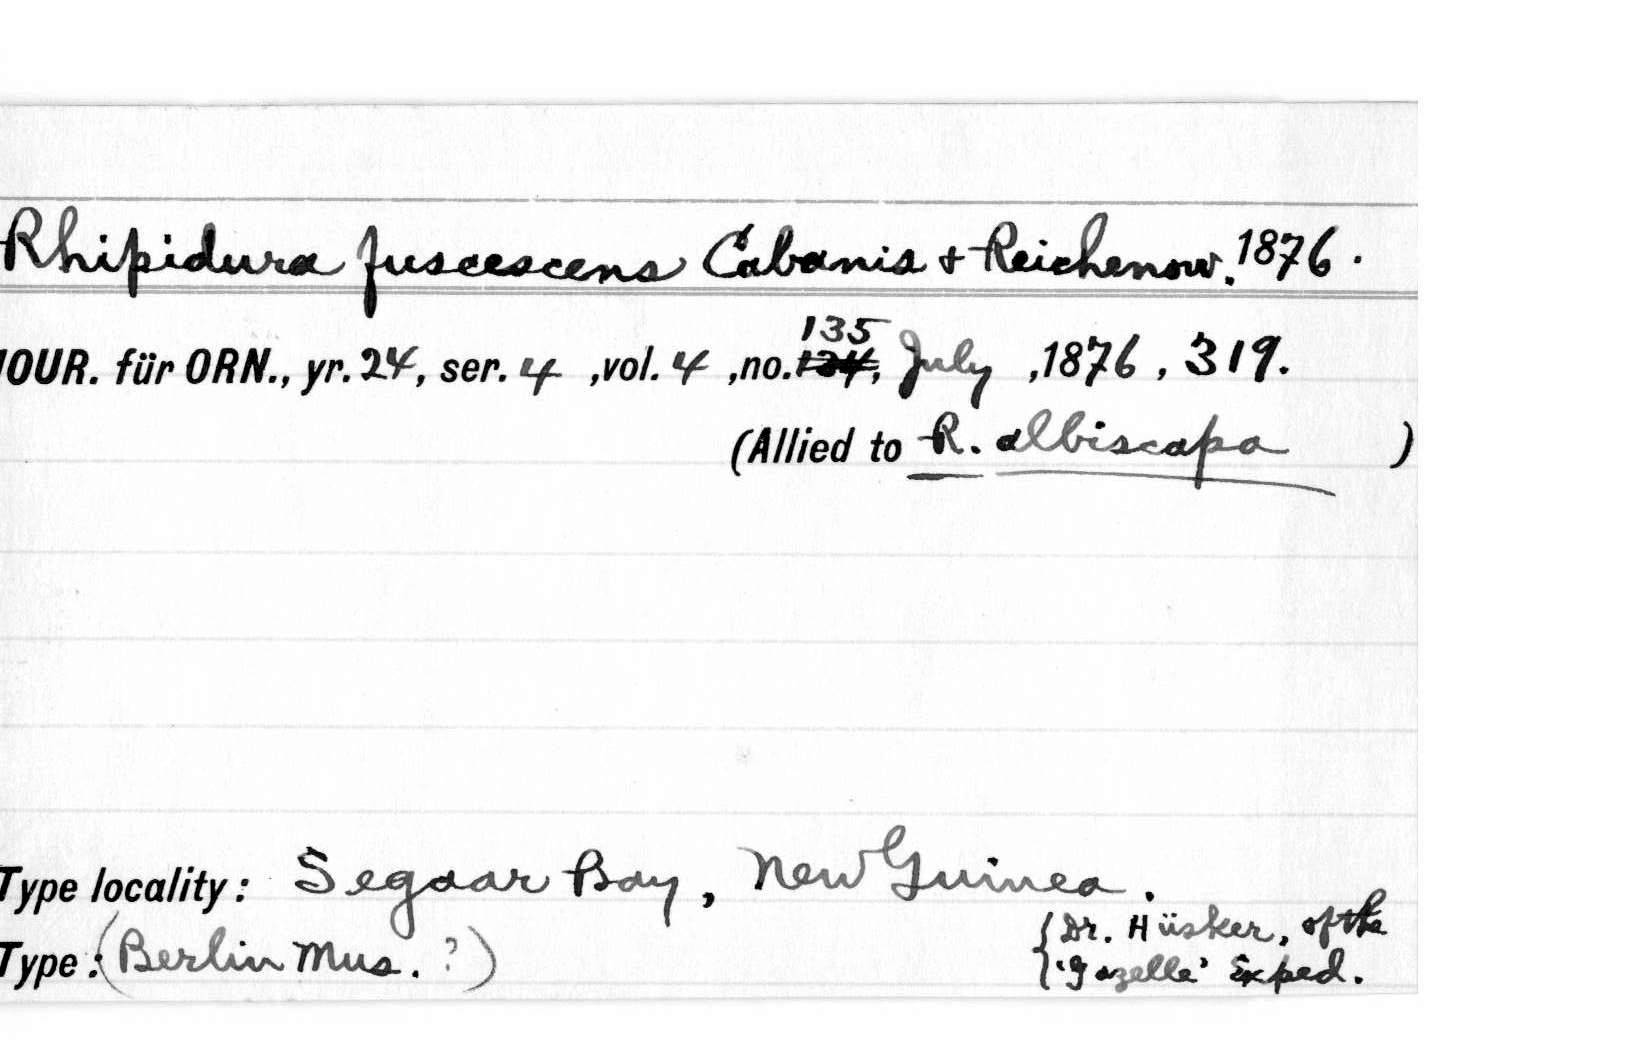 Rhipidura fuscescens Cabanis & Reichenow. 1876.
135
JOUR. für ORN., yr. 24, ser. 4 ,vol. 4 ,no. 134, July ,1876 , 319.
(Allied to R. albiscapa )
Type locality: Segaar Bay, New Guinea.
{Dr. Hüsker, of the
Type: (Berlin Mus. ?)
{'Gazelle' Exped.